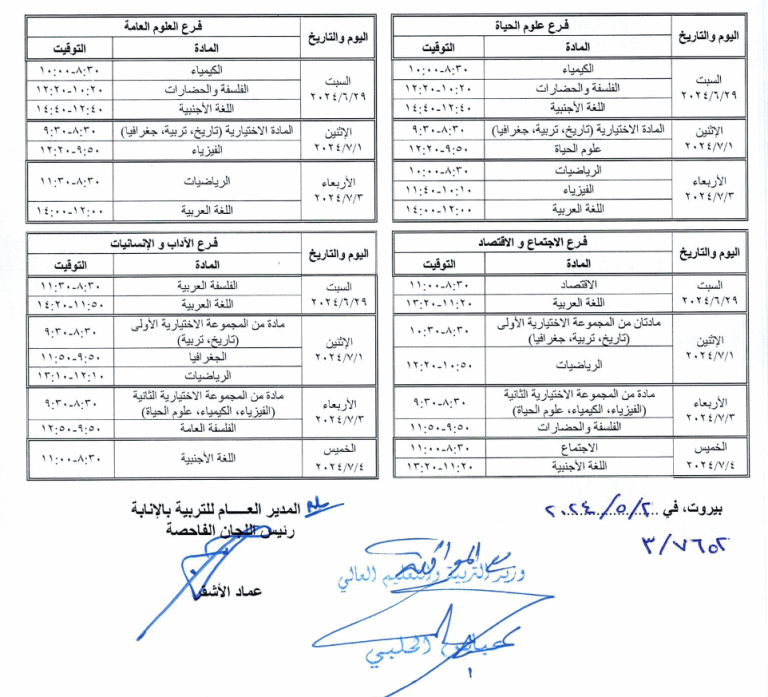 اليوم والتاريخ فرع علوم الحياة
المادة التوقيت
السبت ٢٠٢٤/٦/٢٩ الكيمياء ٨:٣٠-١٠:٠٠
الفلسفة والحضارات ١٠:٢٠-١٢:٢٠
اللغة الأجنبية ١٢:٤٠-١٤:٤٠
الإثنين ٢٠٢٤/٧/١ المادة الاختيارية (تاريخ، تربية، جغرافيا) ٨:٣٠-٩:٣٠
علوم الحياة ٩:٥٠-١٢:٢٠
الأربعاء ٢٠٢٤/٧/٣ الرياضيات ٨:٣٠-١٠:٠٠
الفيزياء ١٠:١٠-١١:٤٠
اللغة العربية ١٢:٠٠-١٤:٠٠
اليوم والتاريخ فرع العلوم العامة
المادة التوقيت
السبت ٢٠٢٤/٦/٢٩ الكيمياء ٨:٣٠-١٠:٠٠
الفلسفة والحضارات ١٠:٢٠-١٢:٢٠
اللغة الأجنبية ١٢:٤٠-١٤:٤٠
الإثنين ٢٠٢٤/٧/١ المادة الاختيارية (تاريخ، تربية، جغرافيا) ٨:٣٠-٩:٣٠
الفيزياء ٩:٥٠-١٢:٢٠
الأربعاء ٢٠٢٤/٧/٣ الرياضيات ٨:٣٠-١١:٣٠
اللغة العربية ١٢:٠٠-١٤:٠٠
اليوم والتاريخ فرع الاجتماع و الاقتصاد
المادة التوقيت
السبت ٢٠٢٤/٦/٢٩ الاقتصاد ٨:٣٠-١١:٠٠
اللغة العربية ١١:٢٠-١٣:٢٠
الإثنين ٢٠٢٤/٧/١ مادتان من المجموعة الاختيارية الأولى
(تاريخ، تربية، جغرافيا) ٨:٣٠-١٠:٣٠
الرياضيات ١٠:٥٠-١٢:٢٠
الأربعاء ٢٠٢٤/٧/٣ مادة من المجموعة الاختيارية الثانية
(الفيزياء، الكيمياء، علوم الحياة) ٨:٣٠-٩:٣٠
الفلسفة والحضارات ٩:٥٠-١١:٥٠
الخميس ٢٠٢٤/٧/٤ الاجتماع ٨:٣٠-١١:٠٠
اللغة الأجنبية ١١:٢٠-١٣:٢٠
اليوم والتاريخ فرع الآداب و الإنسانيات
المادة التوقيت
السبت ٢٠٢٤/٦/٢٩ الفلسفة العربية ٨:٣٠-١١:٣٠
اللغة العربية ١١:٥٠-١٤:٢٠
الإثنين ٢٠٢٤/٧/١ مادة من المجموعة الاختيارية الأولى
(تاريخ، تربية) ٨:٣٠-٩:٣٠
الجغرافيا ٩:٥٠-١١:٥٠
الرياضيات ١٢:١٠-١٣:١٠
الأربعاء ٢٠٢٤/٧/٣ مادة من المجموعة الاختيارية الثانية
(الفيزياء، الكيمياء، علوم الحياة) ٨:٣٠-٩:٣٠
الفلسفة العامة ٩:٥٠-١٢:٥٠
الخميس ٢٠٢٤/٧/٤ اللغة الأجنبية ٨:٣٠-١١:٠٠
بيروت، في ٢٠٢٤/٥/٢
٣/٧٦٥٢
المدير العــــام للتربية بالإنابة
رئيس اللجان الفاحصة
عماد الأشقر
مع الموافقة
وزير التربية والتعليم العالي
عباس الحلبي